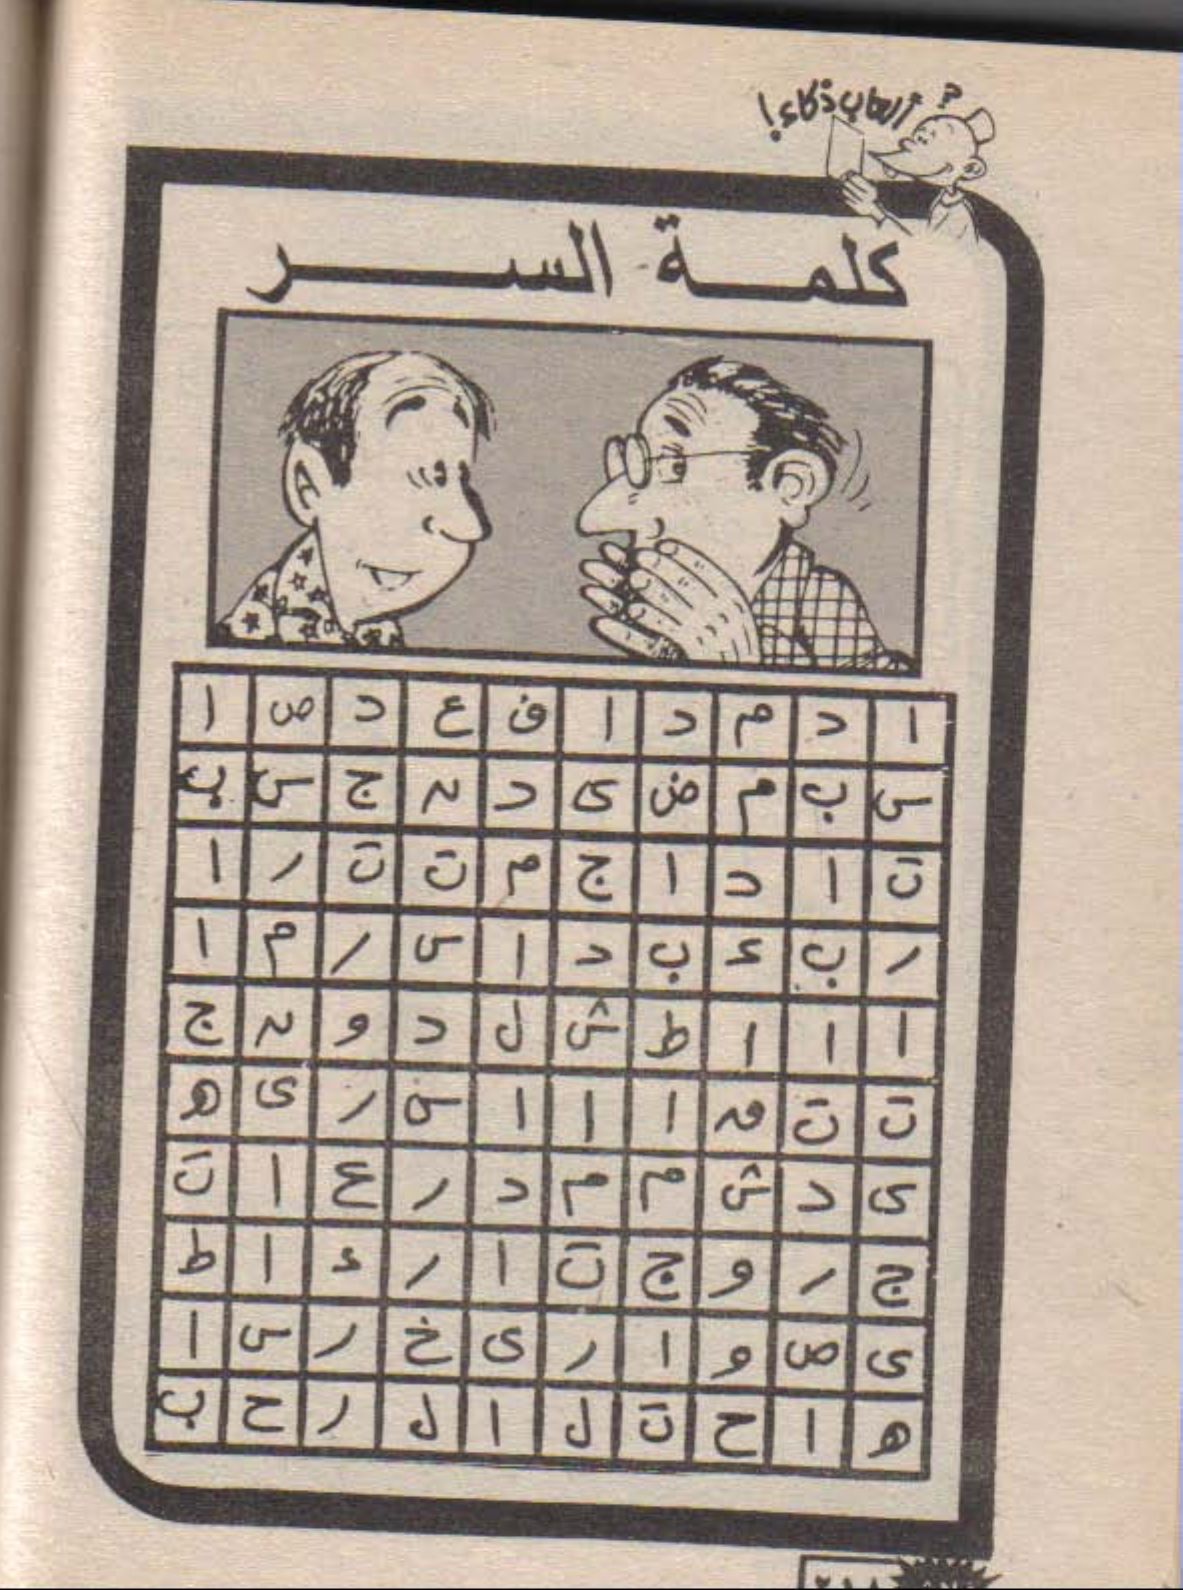 ألعاب ذكاء!
؟
كلمة السر
ا د م د ا ف ع د ص ا
س ب م ض ى د ن ج س ب
ت ا د ا ج م ت ت ر ا
ر ب ء ب د ا س ر م ا
ا ا ا ط ش ل د و ن ج
ت ت ا ا ا ط ر ى ه
ى د ش م م د ر ع ا ت
ج ر و ج ت ا ر ء ا ط
ى ص و ا ر ى خ ر س ا
ه ا ح ت ل ا ل ر ح ب